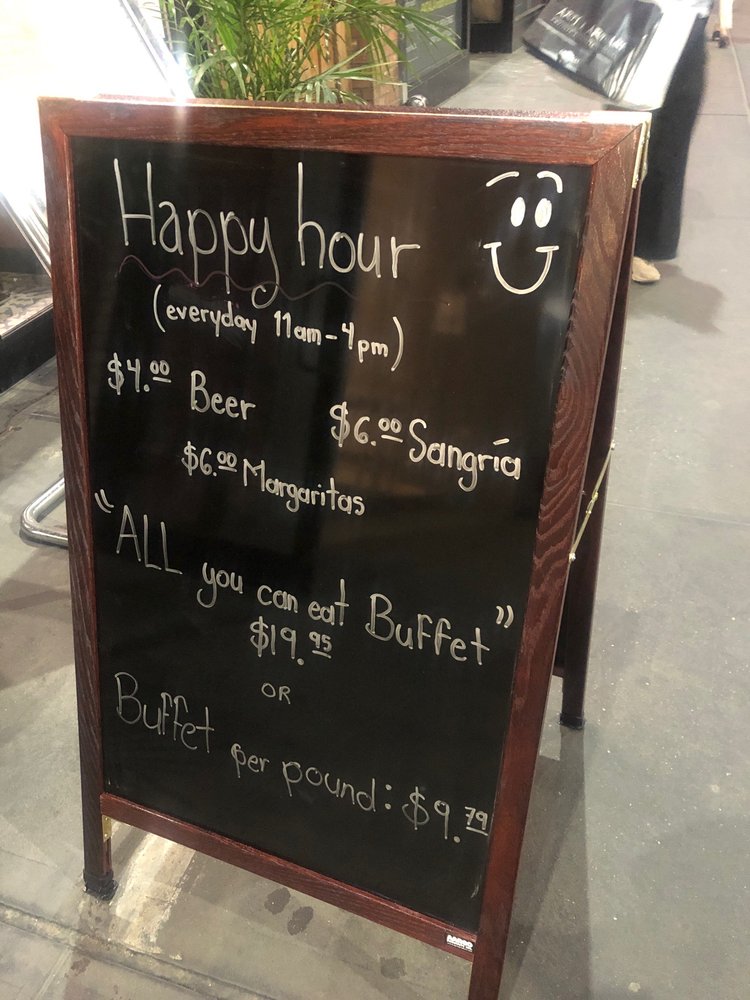 Happy hour
(everyday 11am-4pm)
$4.00 Beer
$6.00 Sangría
$6.00 Margaritas
"ALL you can eat Buffet"
$19.95
OR
Buffet per pound: $9.79